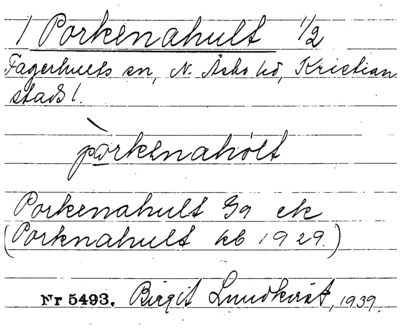 1 Porkenahult 1/2
Fagerhults sn, N. Åsbo hd, Kristian-
stads l.
pòrkenahòlt
Porkenahult Ga ek
(Porknahult kb 1929.)
Nr 5493. Birgit Lundkvist, 1939.